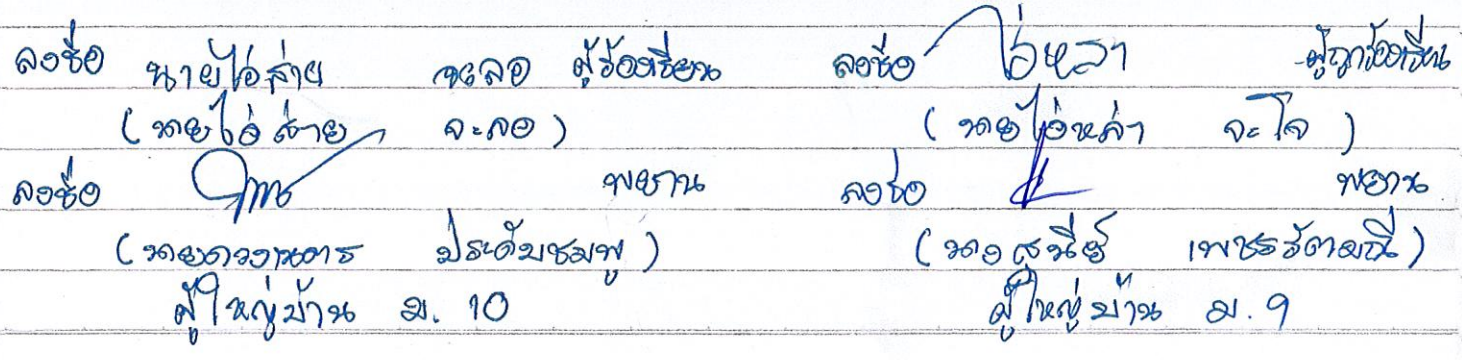 ลงชื่อ นายไอ่ส่าย จะลอ ผู้ร้องเรียน ลงชื่อ ไอ่หล่า ผู้ถูกร้องเรียน
(นายไอ่ส่าย จะลอ) (นายไอ่หล่า จะโจ)
ลงชื่อ พยาน ลงชื่อ พยาน
(นายดวงเนตร ประดับชมพู) (นางสุนีย์ เพชรรัตามณี)
ผู้ใหญ่บ้าน ม. 10 ผู้ใหญ่บ้าน ม. 9